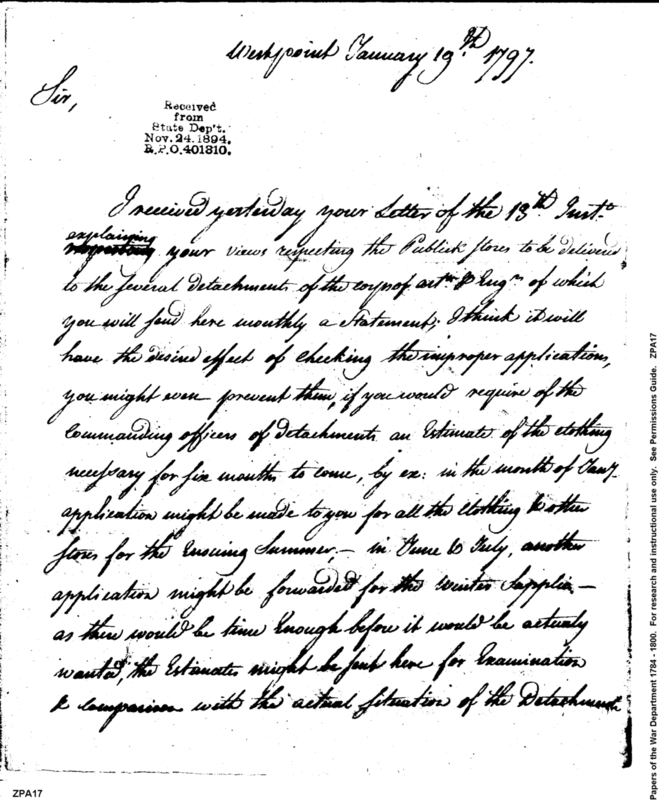 Westpoint January 19th 1797.
Sir,
Received
from
State Dep't.
Nov. 24. 1894.
R.P.O. 401310.
I received yesterday your Letter of the 13th Inst.
explaining
your views respecting the Publick stores to be delivered
to the several detachments of the corps of arty & Engrs of which
you will send here monthly a Statement; I think it will
have the desired effect of checking the improper applications,
you might even prevent them, if you would require of the
Commanding officers of detachments an Estimate of the clothing
necessary for six months to come, by ex: in the month of Jany
application might be made to you for all the clothing & other
stores for the Ensuing Summer, — in June & July, another
application might be forwarded for the Winter Supplies —
as there would be time Enough before it would be actualy
wanted, the Estimates might be sent here for Examination
& comparison with the actual situation of the Detachments
ZPA17
Papers of the War Department 1784 - 1800. For research and instructional use only. See Permissions Guide. ZPA17